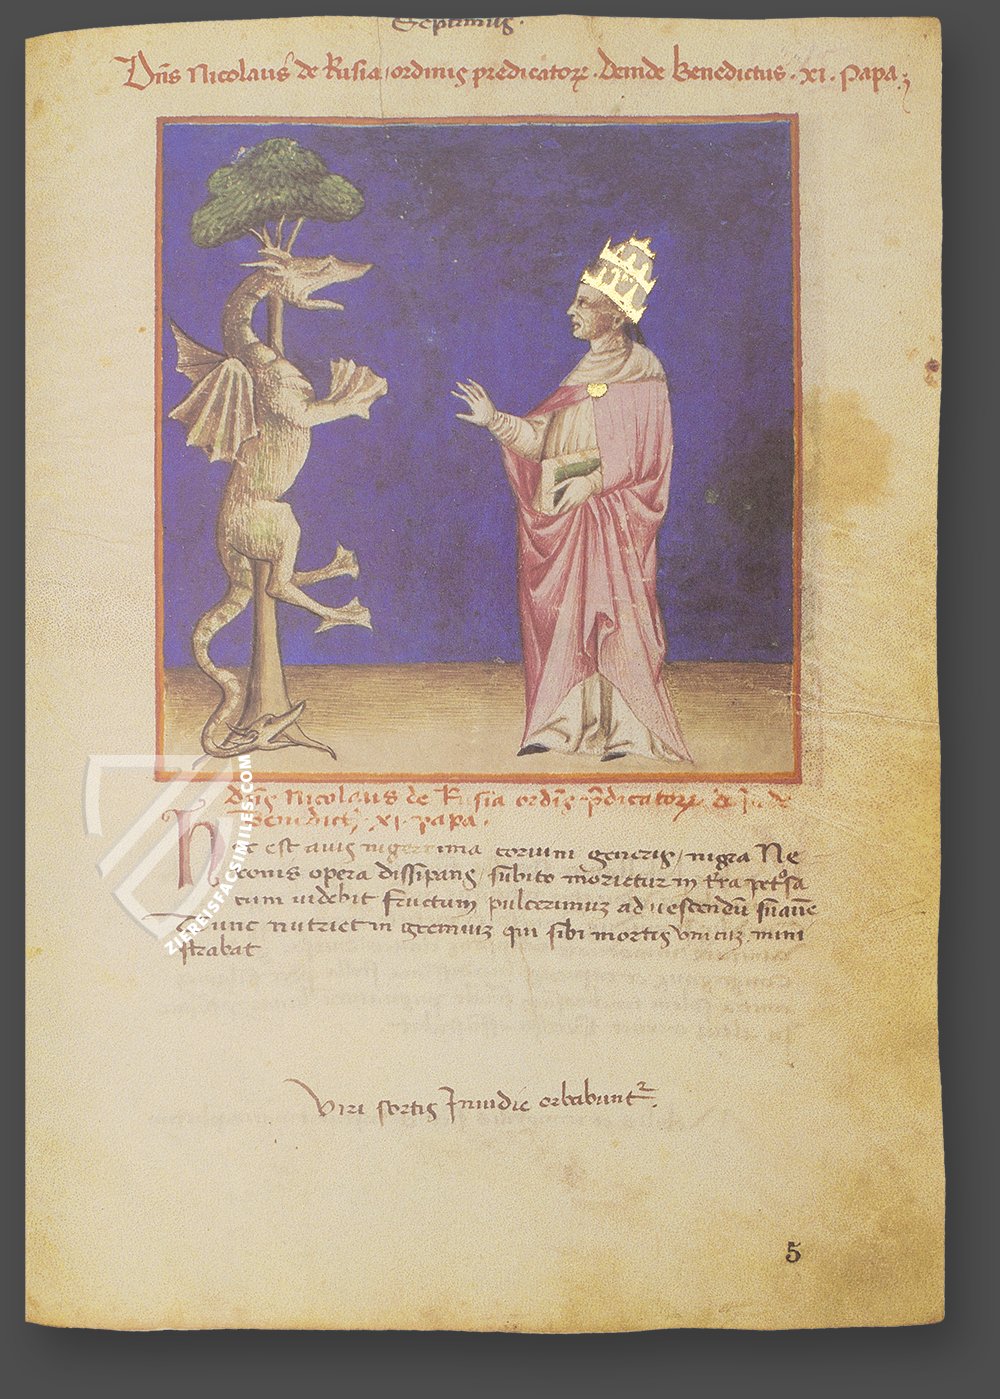 Septimus.
Dn̄s Nicolaus de Rusia, ordinis predicatorꝝ. Deinde Benedictus. xi. papa;
Dn̄s Nicolaus de Rusia ordīs p̄dicatorꝝ &
Benedict9 . xi . papa .
est auis nigerrima coruini generis, nigra Ne
conis opera dissipans, subito morietur in
cum uidebit fructum pulcerimuz ad uescendū suaue
Tunc nutriet in gremiuz qui sibi mortis mini
strabat
Viri fortis Inuidie orbabunt2.
5
ZIEREISFACSIMILES.COM